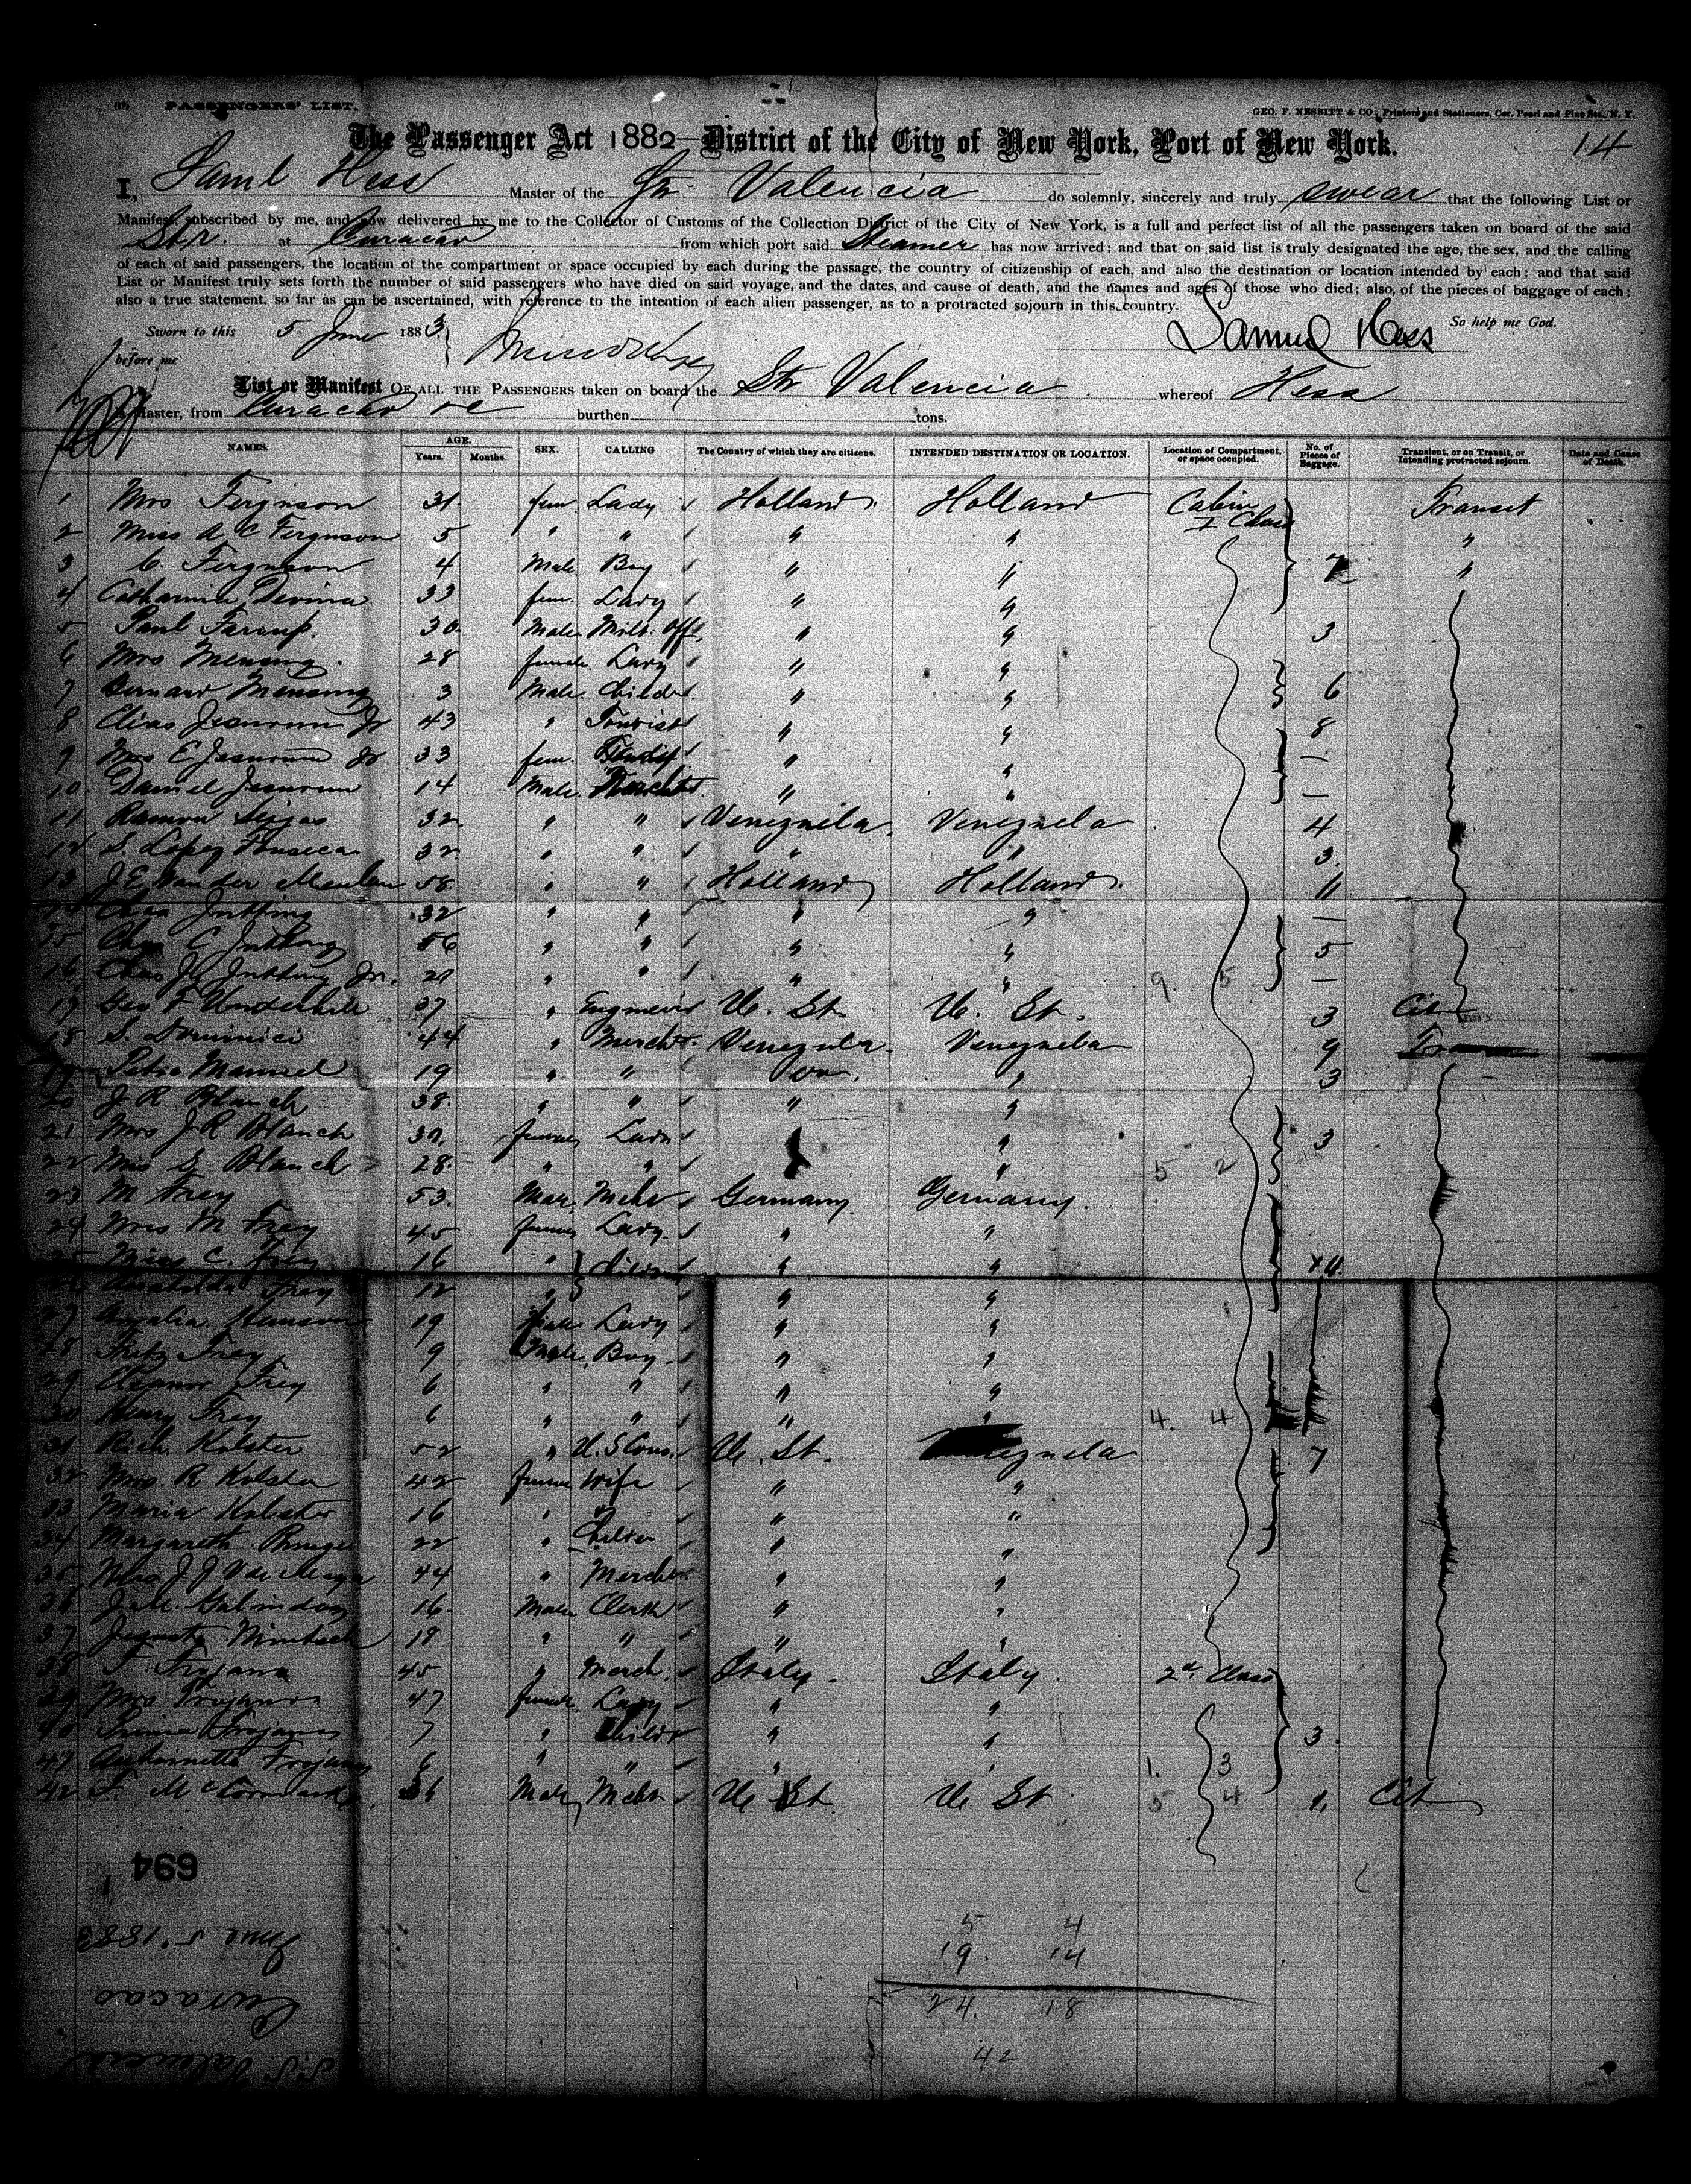 (19) PASSENGERS' LIST.
GEO. F. NESBITT & CO., Printers and Stationers, Cor. Pearl and Pine Sts., N. Y.
The Passenger Act 1882—District of the City of New York, Port of New York.
14
I, Saml Hess Master of the Str Valencia do solemnly, sincerely and truly swear that the following List or
Manifest, subscribed by me, and now delivered by me to the Collector of Customs of the Collection District of the City of New York, is a full and perfect list of all the passengers taken on board of the said
Str. at Curacao from which port said Steamer has now arrived; and that on said list is truly designated the age, the sex, and the calling
of each of said passengers, the location of the compartment or space occupied by each during the passage, the country of citizenship of each, and also the destination or location intended by each; and that said
List or Manifest truly sets forth the number of said passengers who have died on said voyage, and the dates, and cause of death, and the names and ages of those who died; also, of the pieces of baggage of each;
also a true statement, so far as can be ascertained, with reference to the intention of each alien passenger, as to a protracted sojourn in this country.
So help me God.
Sworn to this 5 June 1883
Samuel Hess
before me
List or Manifest OF ALL THE PASSENGERS taken on board the Str Valencia whereof Hess
Master, from Curacao &c burthen tons.
NAMES. AGE. Years. Months. SEX. CALLING The Country of which they are citizens. INTENDED DESTINATION OR LOCATION. Location of Compartment, or space occupied. No. of Pieces of Baggage. Transient, or on Transit, or Intending protracted sojourn. Date and Cause of Death.
1 Mrs Ferguson 31 fem. Lady Holland Holland Cabin I Class Transit
2 Miss A C Ferguson 5 " " " " "
3 C. Ferguson 4 Male Boy " " 7 "
4 Catharina 33 fem. Lady " "
5 Paul 30 Male Milt. Off. " " 3
6 Mrs Mensing 28 female Lady " "
7 Bernard Mensing 3 Male Child " " 6
8 Elias Jesurun Jr 43 " Tourist " " 8
9 Mrs E Jesurun Jr 33 fem. " " —
10 Daniel Jesurun 14 Male " " —
11 Ramon 32 " " Venezuela Venezuela 4
12 S. Lopez Fonseca 32 " " " " 3
13 J E Van der Meulen 58 " " Holland Holland 11
14 Chas Jutting 32 " " " " —
15 Chas C Jutting 56 " " " " 5
16 Chas J Jutting Jr. 21 " " " " 9. 5 —
17 Geo F Underhill 37 " Engineer U. St. U. St. 3 Cit
18 S. Dominici 44 " Mercht. Venezuela Venezuela 9
19 Manuel 19 " " " 3
20 J R Blanch 38 " " " "
21 Mrs J R Blanch 30 female Lady " 3
22 Miss Blanch 28 " " " 5 2
23 M Frey 53 Male Mcht Germany Germany
24 Mrs M Frey 45 female Lady " "
25 Miss C. Frey 16 " Children " "
26 Frey 12 " " "
27 Amalia 19 Lady " "
28 Fritz Frey 9 Male Boy " "
29 Eleanor Frey 6 " " " "
30 Henry Frey 6 " " " " 4. 4
31 Rich. Kolster 52 " U. S Cons. U. St. 7
32 Mrs. R Kolster 42 female Wife " "
33 Maria Kolster 16 " " "
34 Margareth 22 " " "
35 44 " Mercht. " "
36 16 Male Clerk " "
37 18 " " " "
38 F. Trojana 45 " Merch. Italy Italy 2d. Class
39 Mrs Trojano 47 female Lady " "
40 Trojano 7 " Child " " 3.
41 Antoinette Trojano 6 " " " " 1. 3
42 F. McCormack Male Mcht U St U St 5 4 1. Cit
694
June 5 1883
Curacao
S.S. Valencia
5 4
19. 14
24. 18
42